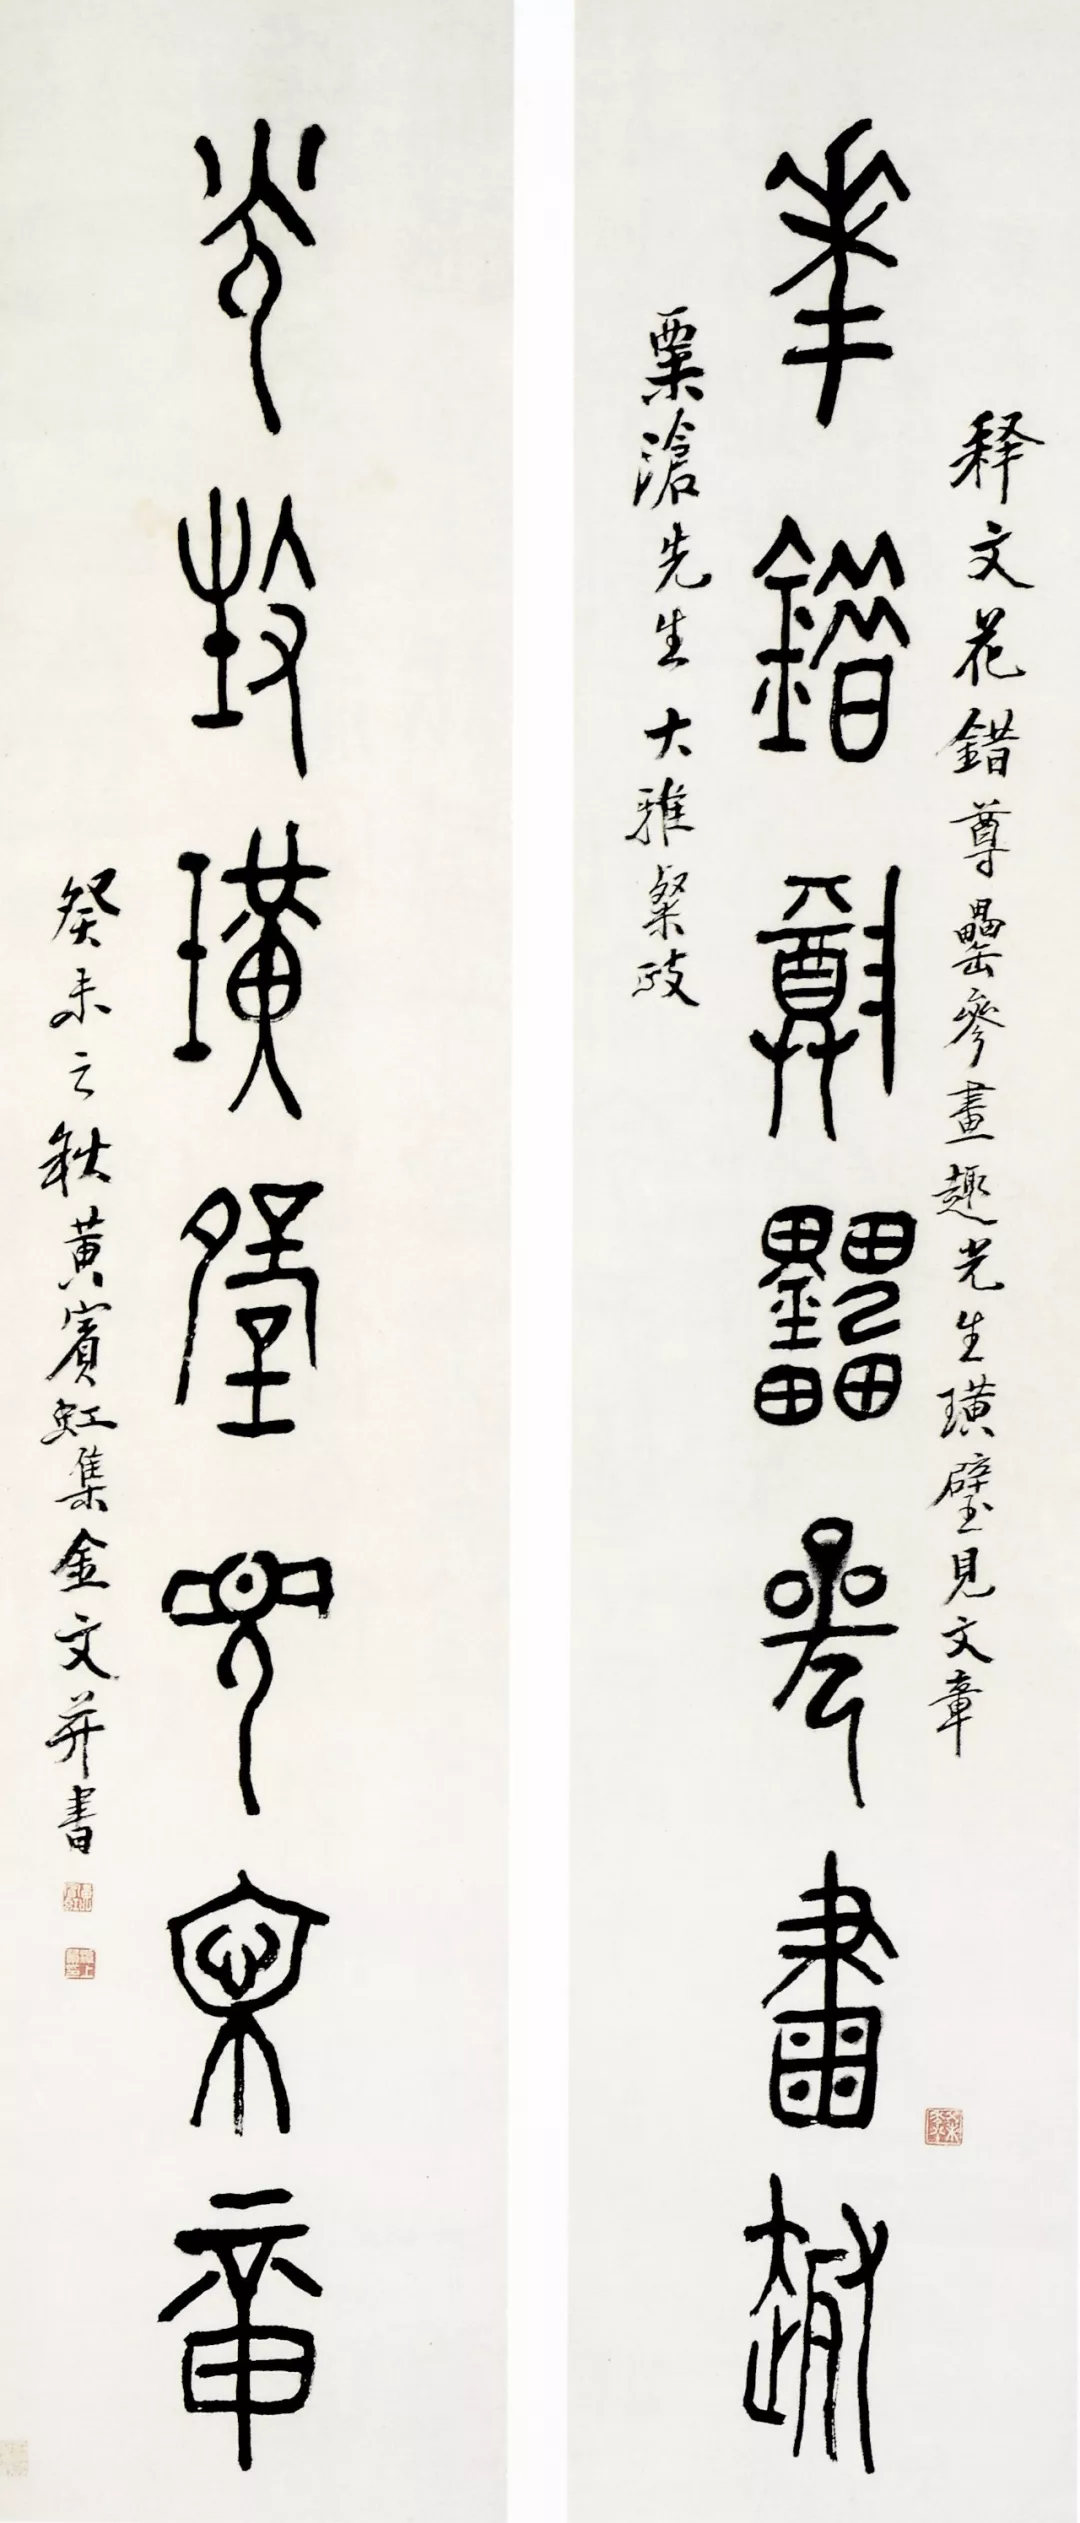 释文花錯尊罍參畫趣光生璜璧見文章
華錯尊罍參畫趣
栗滄先生大雅粲政
光生璜璧見文章
癸未之秋黃賓虹集金文并書